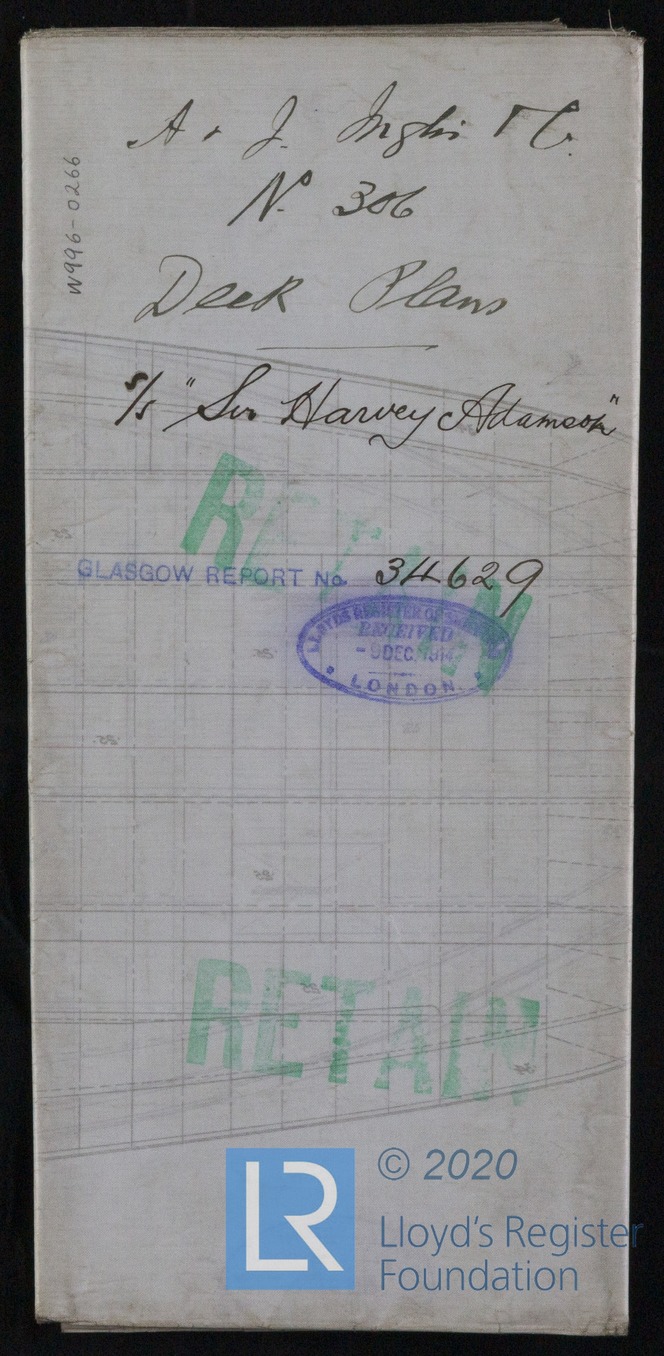 A & J. Inglis & Co.
No. 306
Deck Plans
S/S "Sir Harvey Adamson"
W996-0266
RETAIN
GLASGOW REPORT No. 34629
LLOYD'S REGISTER OF SHIPPING
RECEIVED
-9 DEC. 1914
LONDON.
RETAIN
LR
© 2020
Lloyd's Register
Foundation